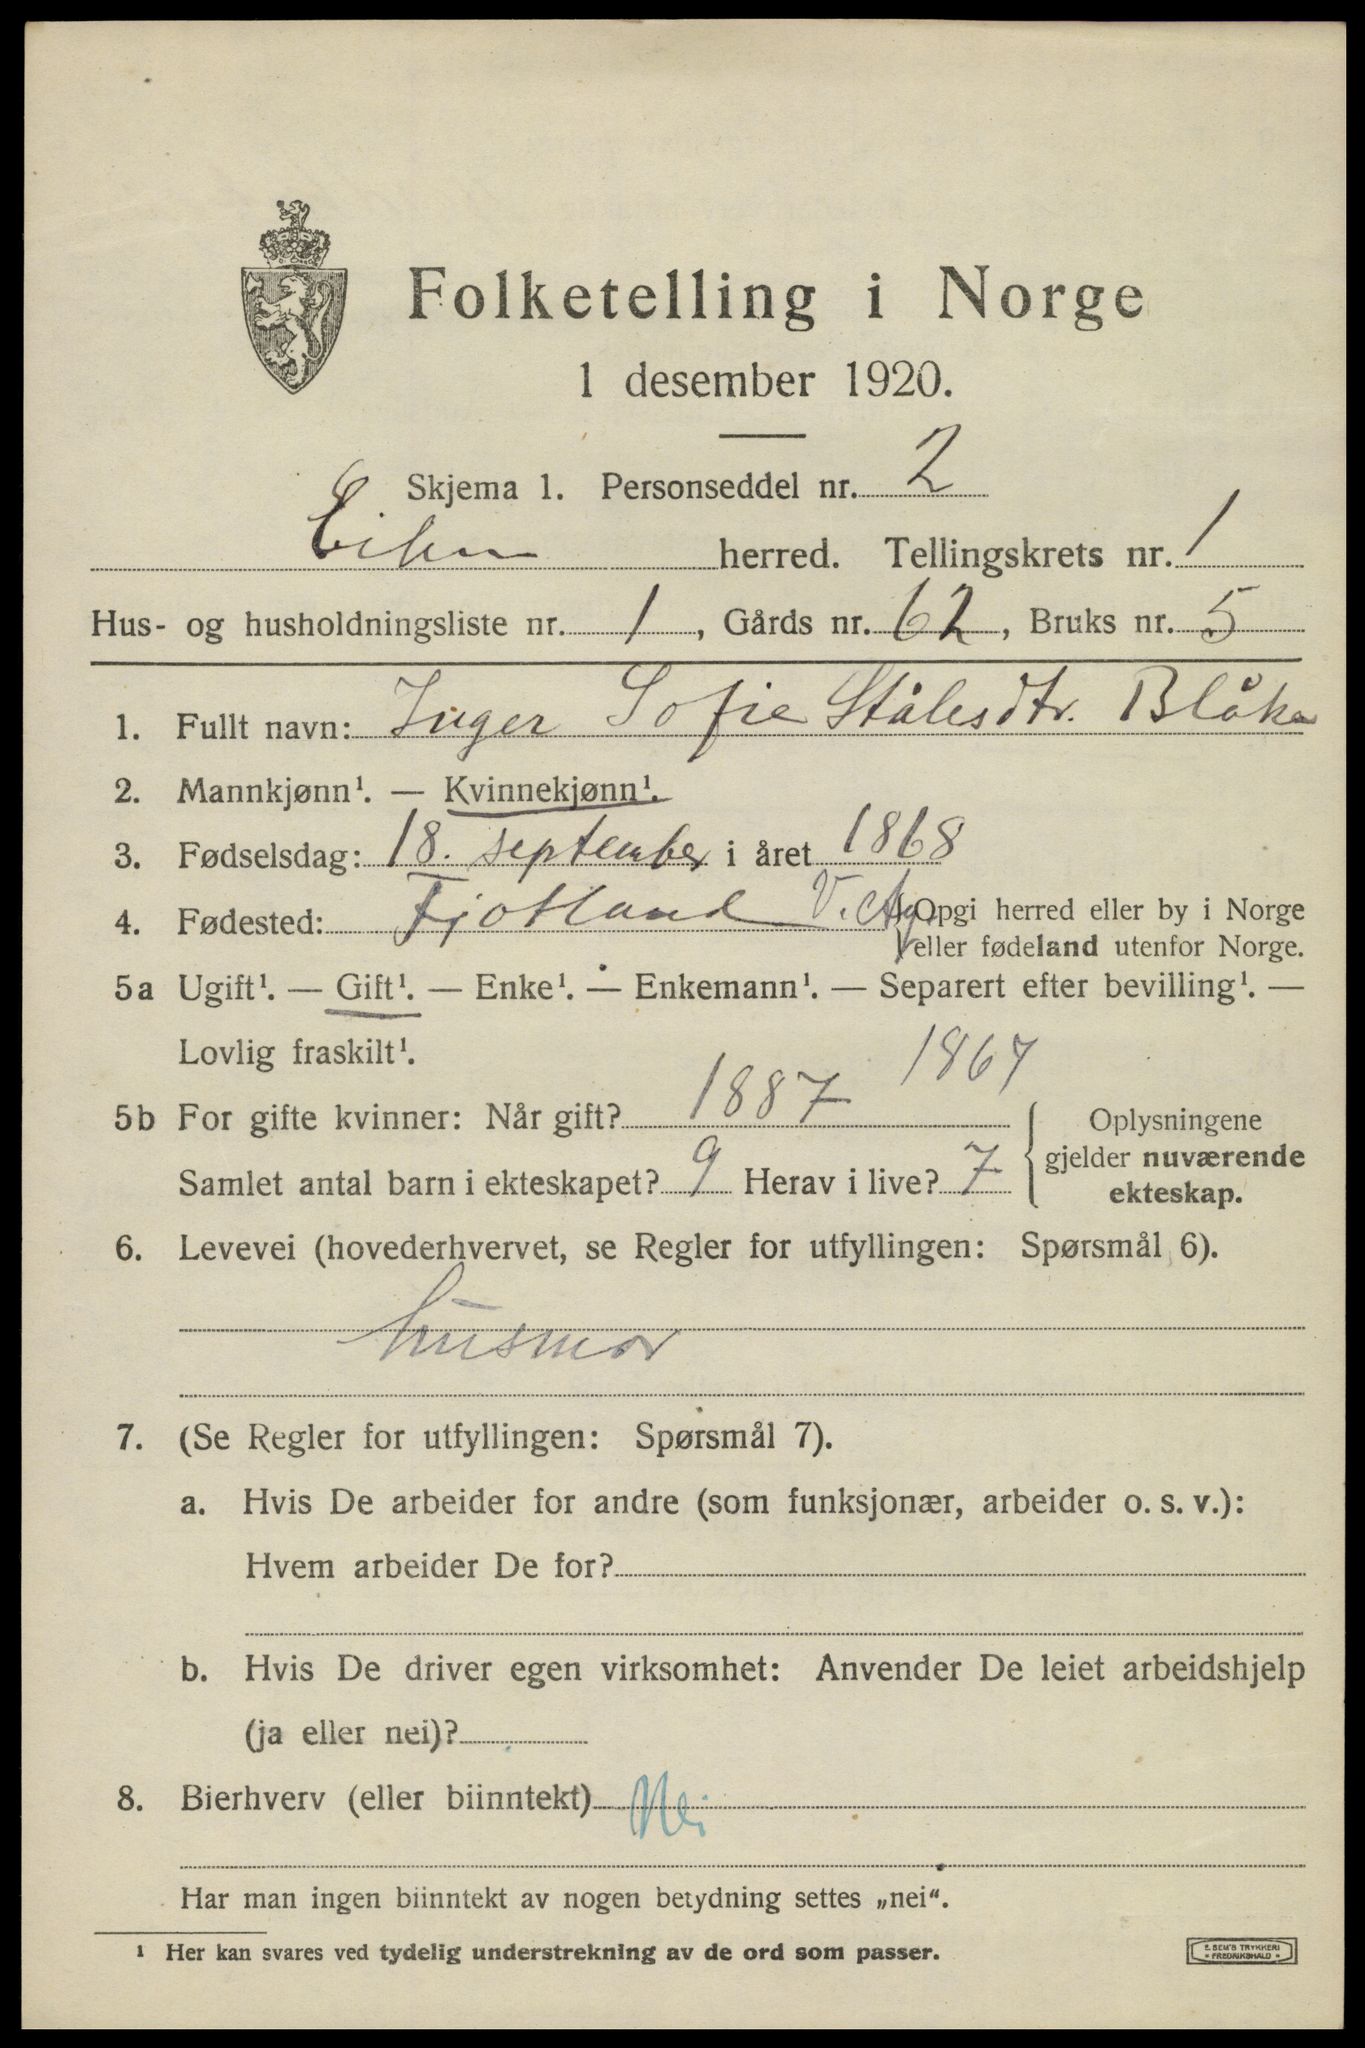 Folketelling i Norge
1 desember 1920.
Skjema 1. Personseddel nr. 2
Eiken herred. Tellingskrets nr. 1
Hus- og husholdningsliste nr. 1, Gårds nr. 62, Bruks nr. 5
1. Fullt navn: Inger Sofie Stålesdtr. Blåka
2. Mannkjønn¹. — Kvinnekjønn¹.
3. Fødselsdag: 18. september i året 1868
4. Fødested: Fjotland V. Ag. Opgi herred eller by i Norge
eller fødeland utenfor Norge.
5a Ugift¹. — Gift¹. — Enke¹. — Enkemann¹. — Separert efter bevilling¹. —
Lovlig fraskilt¹.
1867
5b For gifte kvinner: Når gift? 1887
Samlet antal barn i ekteskapet? 9 Herav i live? 7
Oplysningene
gjelder nuværende
ekteskap.
6. Levevei (hovederhvervet, se Regler for utfyllingen: Spørsmål 6).
husmor
7. (Se Regler for utfyllingen: Spørsmål 7).
a. Hvis De arbeider for andre (som funksjonær, arbeider o. s. v.):
Hvem arbeider De for?
b. Hvis De driver egen virksomhet: Anvender De leiet arbeidshjelp
(ja eller nei)?
8. Bierhverv (eller biinntekt) Nei
Har man ingen biinntekt av nogen betydning settes „nei“.
¹ Her kan svares ved tydelig understrekning av de ord som passer.
E. SEM'S TRYKKERI
FREDRIKSHALD